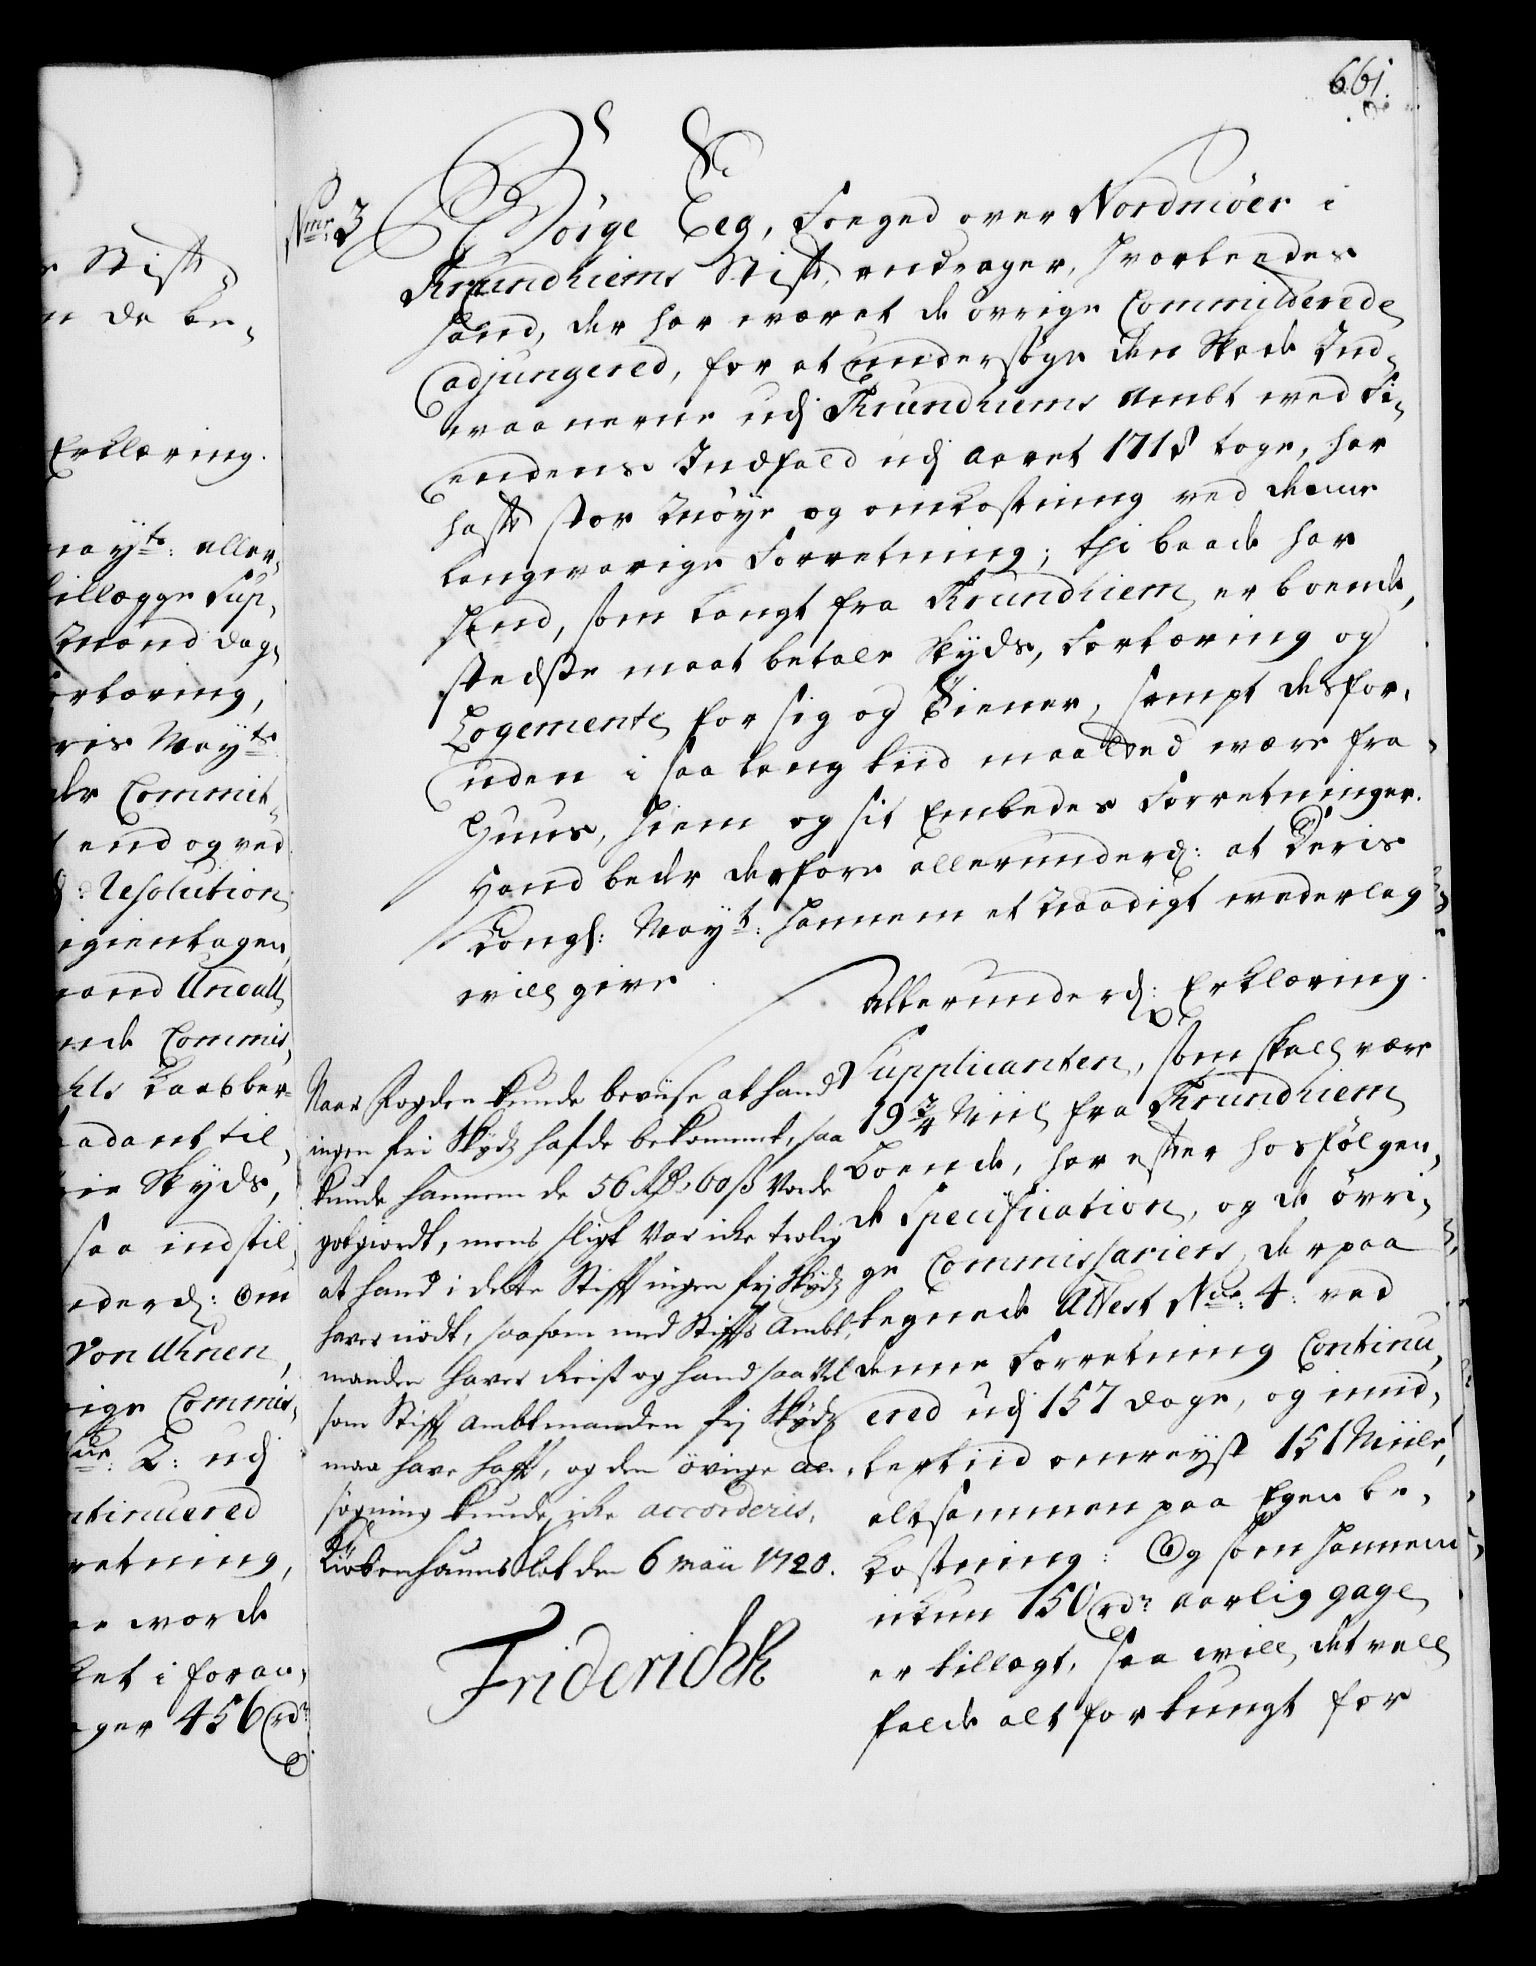 661.
Nrr. 3 Börge Eeg, Foeged over Nordmöer i
Trundhiems Stift, andrager, hvorleedes
hand, der har været de övrige Committerede
adjungered, for at undersöge den Skade Ind-
vaanerne udj Trundhiems Ambt ved Fi-
endens Indfald udj Aaret 1718 toge, har
haft stor Möye og omkostning ved denne
langvarige Forretning; thi baade har
hand, som langt fra Trundhiem er boende,
stedse maat betale Skyds, Fortæring og
Logemente for sig og Tiener, sampt desfor-
uden i saa lang tiid maatted være fra
Huus, Hiem og sit Embedes Forretninger.
Hand beder derfore allerunderd: at Deris
Kongl: Mayt: hannem et Naadigt vederlag
will give.
Allerunderd: Erklæring.
Supplicanten, som skall være
19 3/4 Miil fra Trundhiem
boende, har efter hosfölgen-
de Specification, og de övri-
ge Commissariers derpaa
tegnede Attest Nrr: 4: ved
denne Forretning Continu-
ered udj 157 Dage, og imid-
lertiid omreyst 151 Miile,
altsammen paa Egen be-
kostning: Og som hannem
ikun 150 rdr aarlig gage
er tillagt, saa will det vell
falde alt for tungt for
Naar Fogden kunde beviise at hand
ingen fri Skydz hafde bekommet, saa
kunde hannem de 56 Rdr 60 ß Vorde
gotgiordt, mens sligt Var icke trolig
at hand i dette Stifft ingen frj Skydz
haver nödt, saasom med Stiffts Ambt-
manden haver Reist og hand saavel
som Stifft ambtmanden frj Skydz
maa have hafft, og den övrige an-
sögning kunde icke accorderis.
Kiöbenhauns Slot den 6 Maii 1720.
Friderichk
Stift
da be-
Erklæring.
Mayts: aller-
tillægge Sup-
Maand dag-
ortæring,
ris Mayts
Commit-
end og ved
: Resolution
igientagen
Commis-
til
Skyds,
saa indstil-
ederd: om
von Ahnen,
ige Commis-
2: udj
ntinuered
retning,
vorde
let i foran-
ger 456 rdr